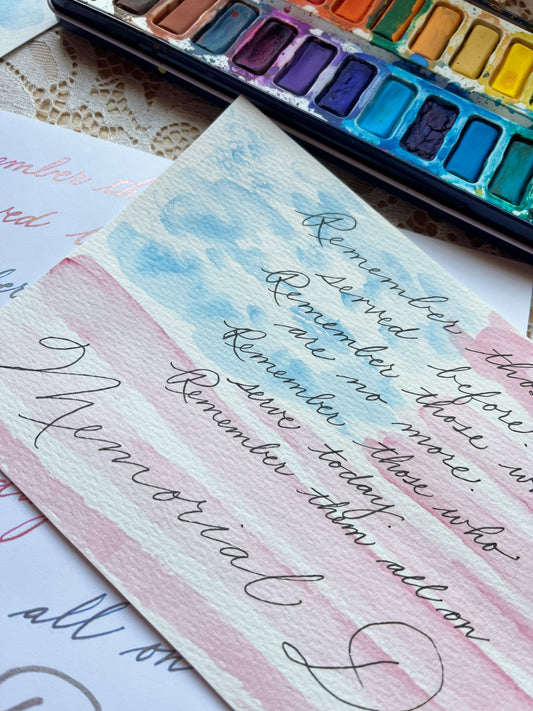 Remember thos
served before.
Remember those w
are no more.
Remember those who
serve today.
Remember them all on
Memorial D
ember th
ved
ber
all on